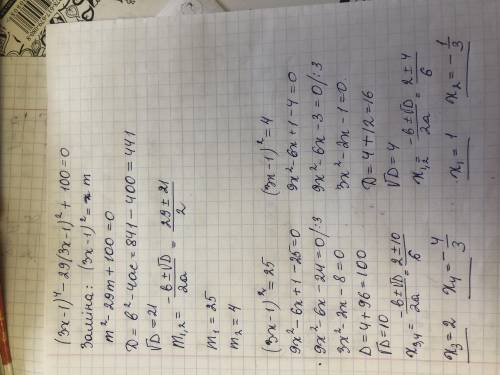 (3x-1)⁴ - 29(3x-1)² + 100 = 0
Заміна: (3x-1)² = m
m² - 29m + 100 = 0
D = b² - 4ac = 841 - 400 = 441
√D = 21
m₁,₂ = (-b ± √D)/2a = (29 ± 21)/2
m₁ = 25
m₂ = 4
(3x-1)² = 25
9x² - 6x + 1 - 25 = 0
9x² - 6x - 24 = 0 /:3
3x² - 2x - 8 = 0
D = 4 + 96 = 100
√D = 10
x₃,₄ = (-b ± √D)/2a = (2 ± 10)/6
x₃ = 2 x₄ = -4/3
(3x-1)² = 4
9x² - 6x + 1 - 4 = 0
9x² - 6x - 3 = 0 /:3
3x² - 2x - 1 = 0.
D = 4 + 12 = 16
√D = 4
x₁,₂ = (-b ± √D)/2a = (2 ± 4)/6
x₁ = 1 x₂ = -1/3